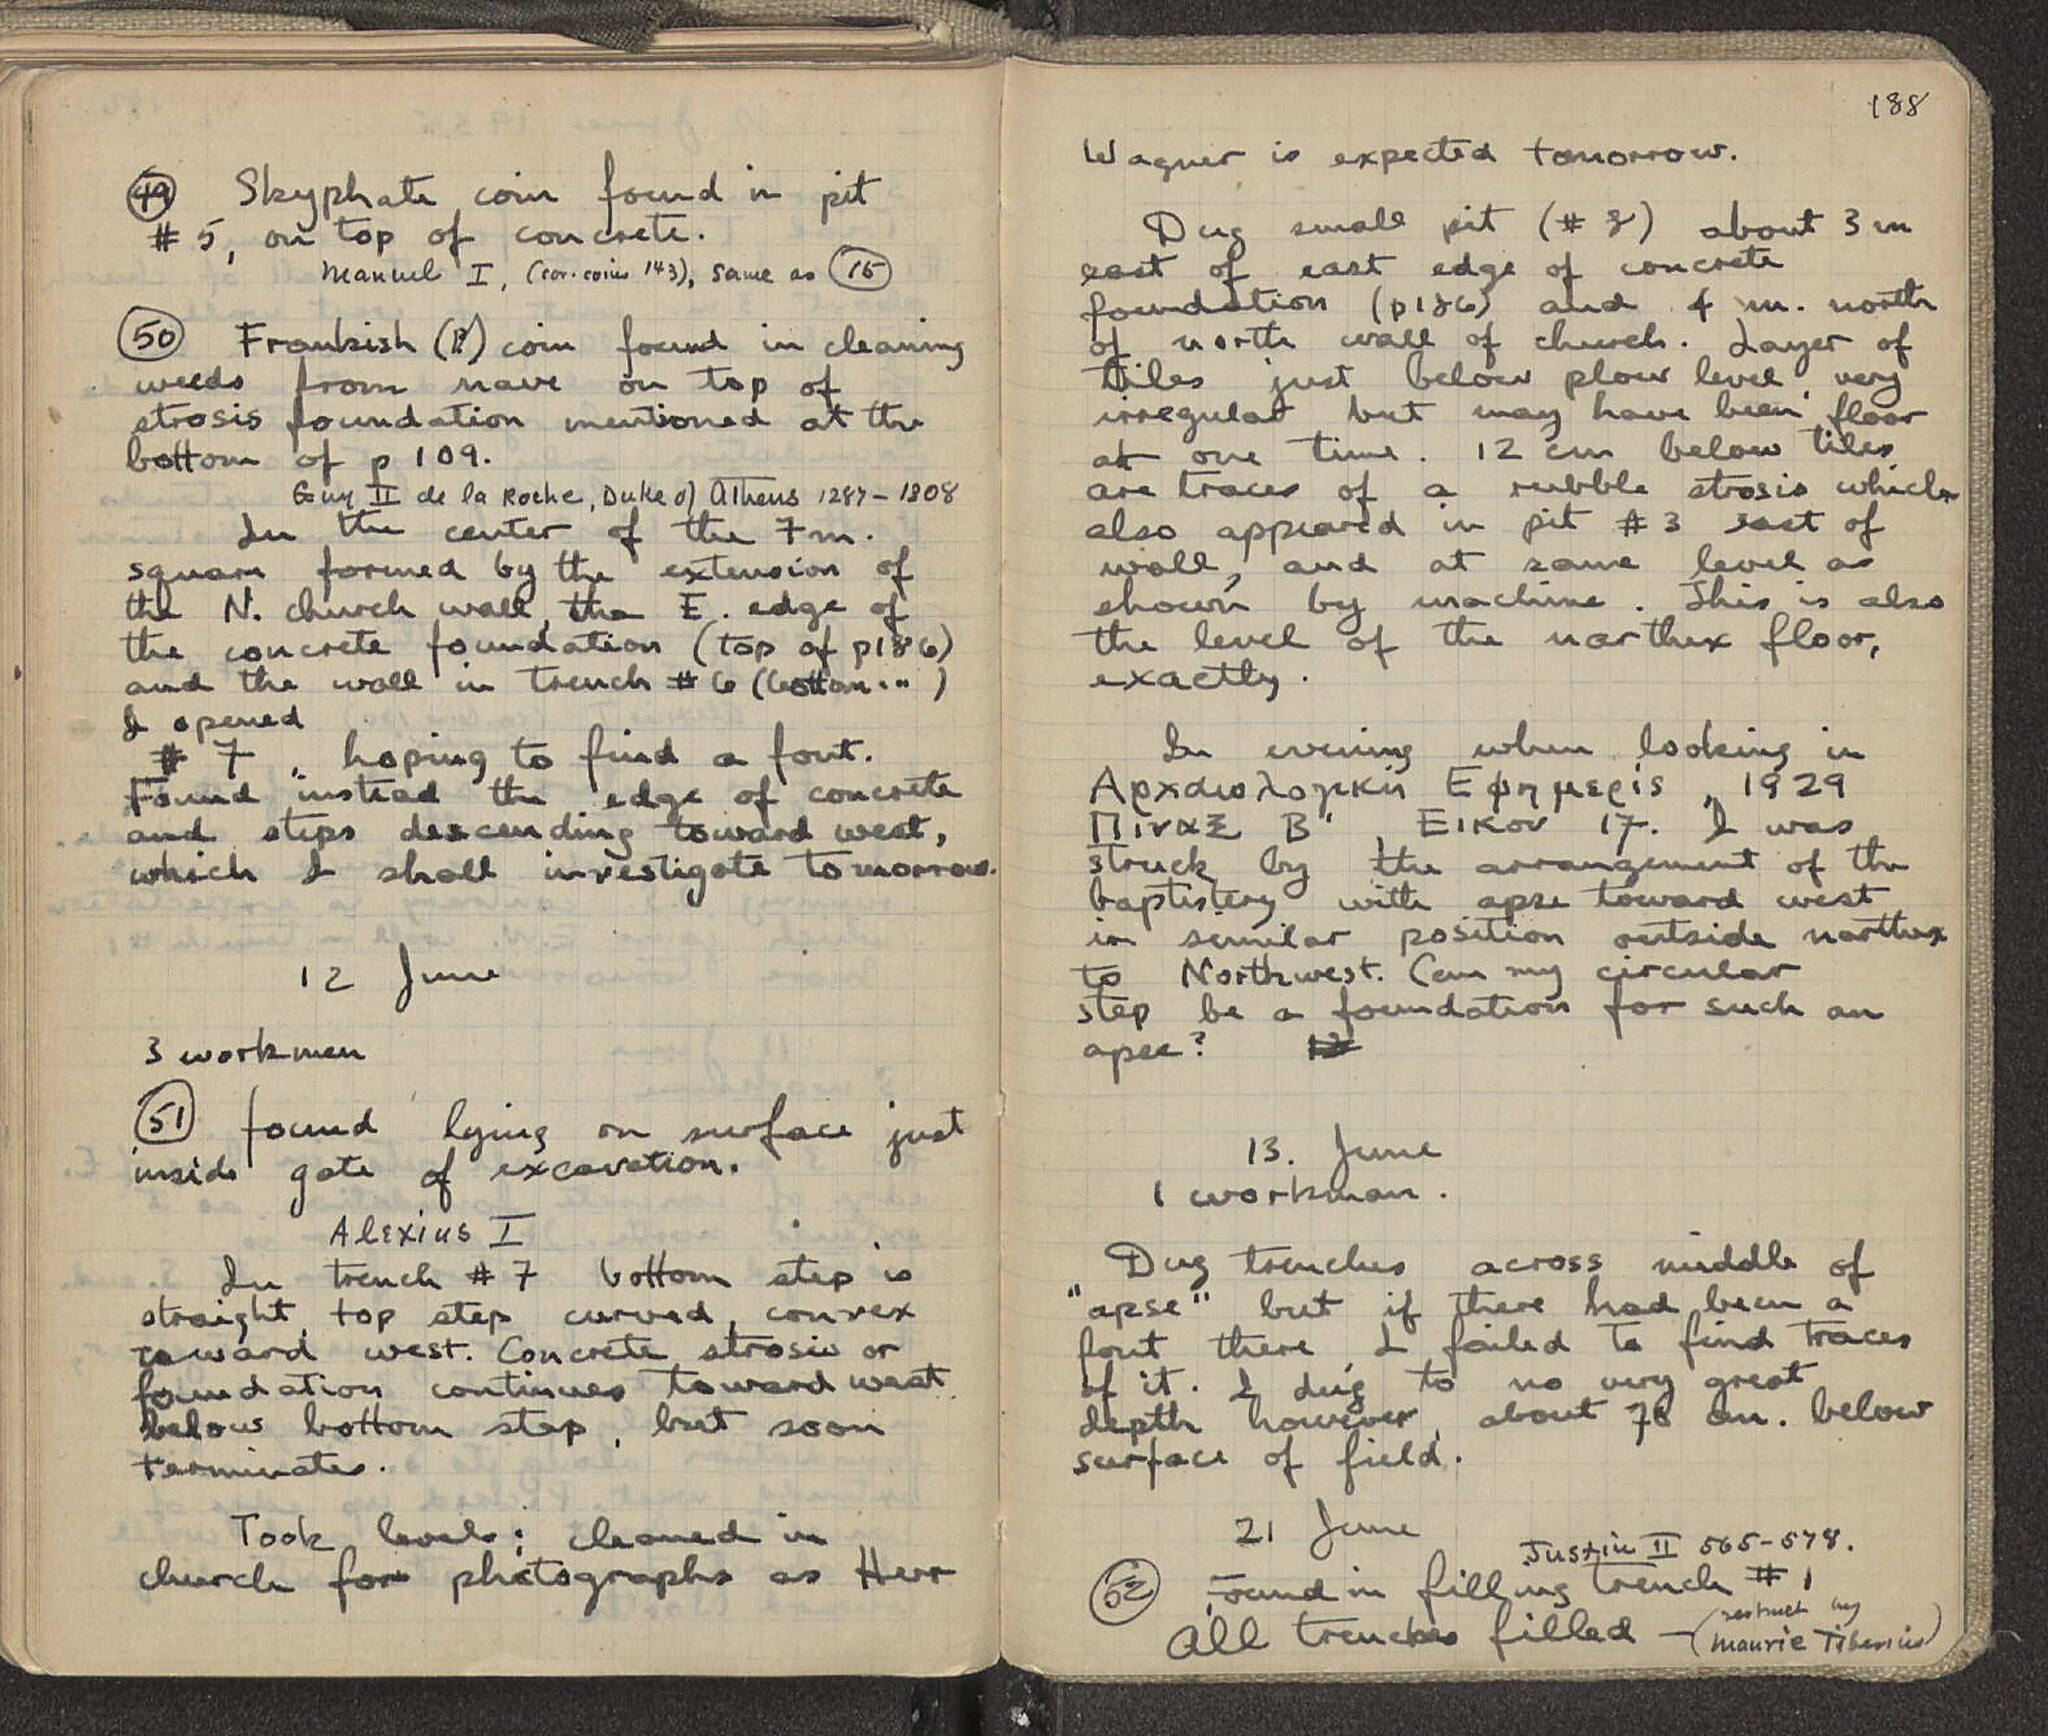 49 Skyphate coin found in pit
# 5, on top of concrete.
Manuel I, (cor. coins 143), same as 15
50 Frankish (?) coin found in cleaning
weeds from nave on top of
strosis foundation mentioned at the
bottom of p 109.
Guy II de la Roche, Duke of Athens 1287-1308
In the center of the 7m.
square formed by the extension of
the N. church wall, the E. edge of
the concrete foundation (top of p186)
and the wall in trench #6 (bottom... )
I opened
# 7, hoping to find a font.
Found instead the edge of concrete
and steps descending toward west,
which I shall investigate tomorrow.
12 June
3 workmen
51 found lying on surface just
inside gate of excavation.
Alexius I
In trench # 7 bottom step is
straight, top step curved, convex
toward west. Concrete strosis or
foundation continues toward west
below bottom step, but soon
terminates.
Took levels; cleaned in
church for photographs as Herr
188
Wagner is expected tomorrow.
Dug small pit (# 8) about 3 m
east of east edge of concrete
foundation (p186) and 4 m. north
of north wall of church. Layer of
tiles just below plow level, very
irregular but may have been floor
at one time. 12 cm below tiles
are traces of a rubble strosis which
also appeared in pit #3 east of
wall, and at same level as
shown by machine. This is also
the level of the narthex floor,
exactly.
In evening when looking in
Αρχαιολογικὴ Εφημερίς, 1929
Πιναξ Β', Εικον 17. I was
struck by the arrangement of the
baptistery with apse toward west
in similar position outside narthex
to Northwest. Can my circular
step be a foundation for such an
apse?
13. June
1 workman.
Dug trenches across middle of
"apse" but if there had been a
font there, I failed to find traces
of it. I dug to no very great
depth however, about 70 cm. below
surface of field.
21 June
Justin II 565-578.
52 Found in filling trench # 1
All trenches filled - (restruck by
Maurice Tiberius)